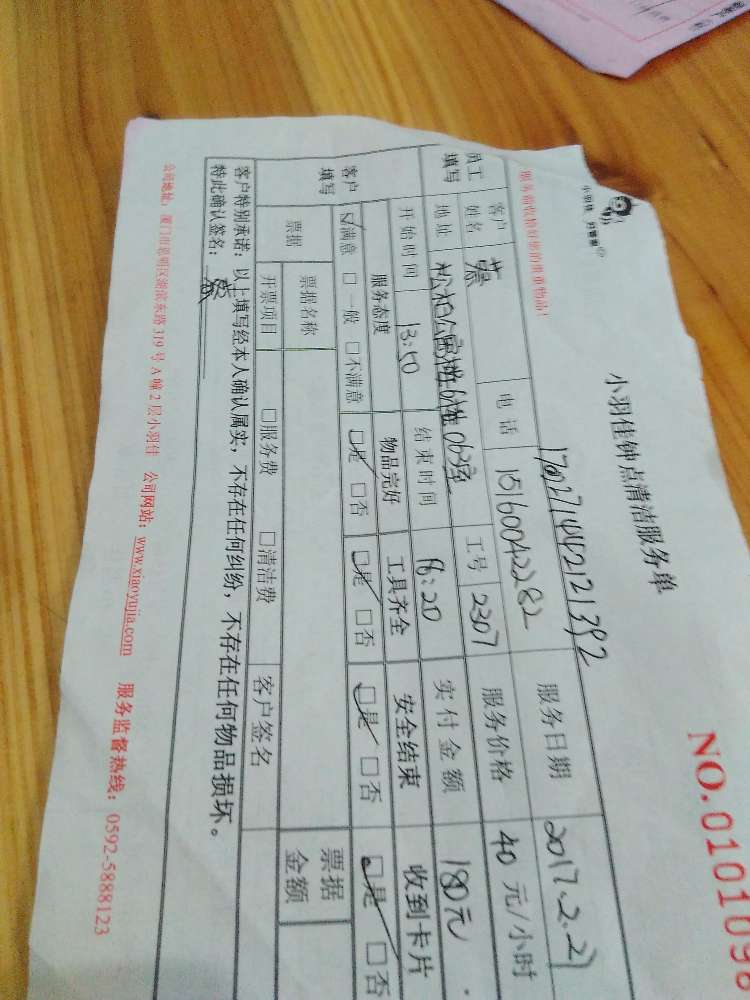 小羽佳 好管家
小羽佳钟点清洁服务单
NO.0101098
服务前收拾好您的贵重物品!
170271442121392
员工填写
客户姓名 蔡 电话 15160042282 服务日期 2017.2.27
地址 工号 2307 服务价格 40 元/小时
开始时间 13:50 结束时间 18:20 实付金额 180元
客户填写
服务态度 物品完好 工具齐全 安全结束 收到卡片
☑满意 □一般 □不满意 ☑是 □否 ☑是 □否 ☑是 □否 ☑是 □否
票据
票据名称 票据金额
开票项目 □服务费 □清洁费 客户签名
客户特别承诺:以上填写经本人确认属实,不存在任何纠纷,不存在任何物品损坏。
特此确认签名:蔡
公司地址:厦门市思明区湖滨东路 319 号 A 幢 2 层小羽佳 公司网站:www.xiaoyujia.com 服务监督热线:0592-5888123